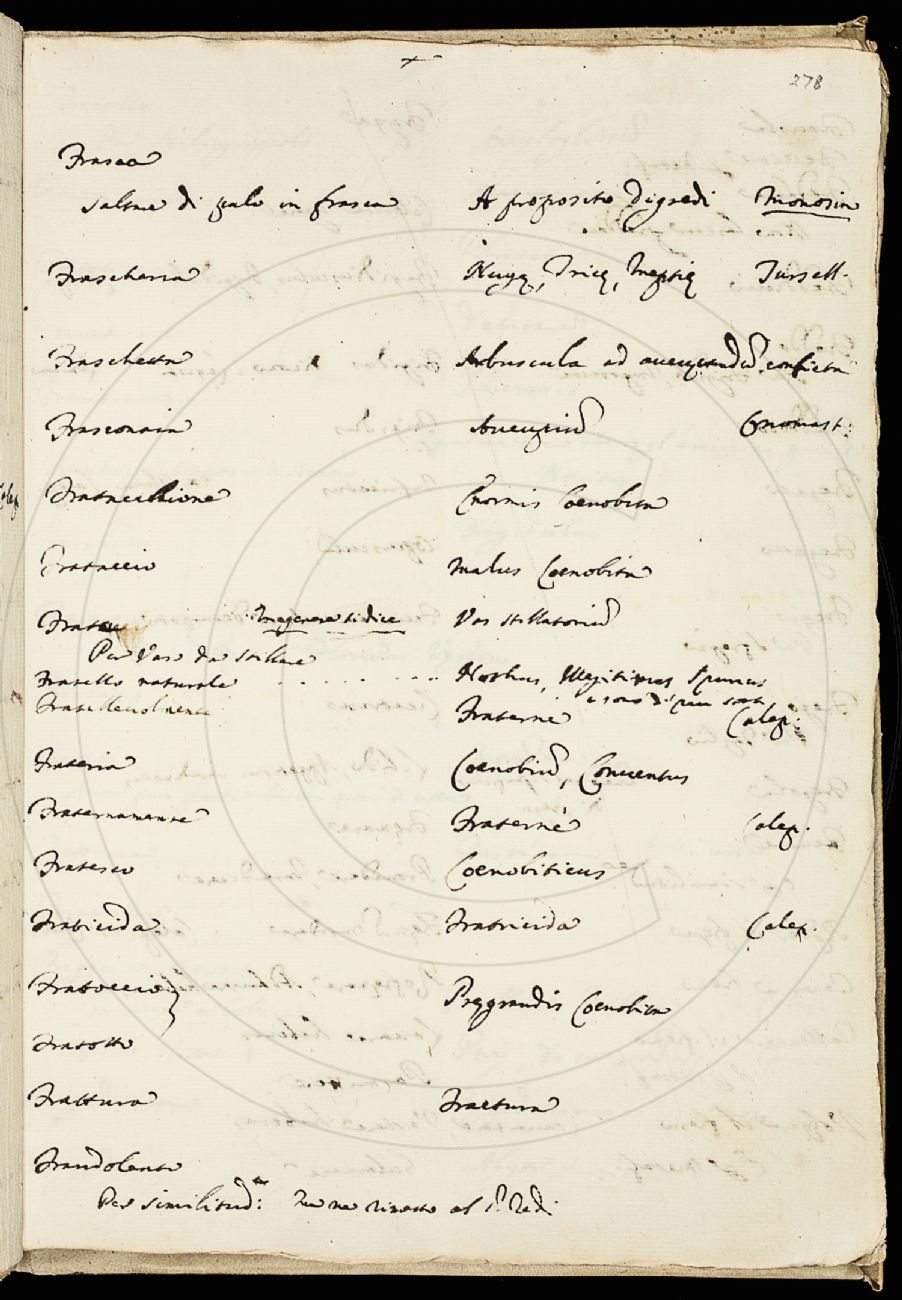 278
Frasca
Saltare di palo in frasca A proposito digredi Monosin
Frascheria Nugę, Tricę, Ineptię Tursell.
Fraschetta Arbuscula ad aucupandũ conficta
Frasconaia Aucupiũ Onomast:
Fratacchione Enormis Coenobita
Frataccio Malus Coenobita
Frate In genere si dice Vas stillatoriũ
Per Vaso da stillare
Fratello naturale . . . . . . . . Nothus, Illegitimus Spurius
e sono di piu sorte
Fratellevolmente Fraternè Calep:
Frateria Coenobiũ, Conventus
Fraternamente Fraternè Calep.
Fratesco Coenobiticus
Fratricida Fratricida Calep.
Fratoccio
Fratotto Pręgrandis Coenobita
Frattura Fractura
Fraudolento
Per similitud: me ne rimetto al S. Redi